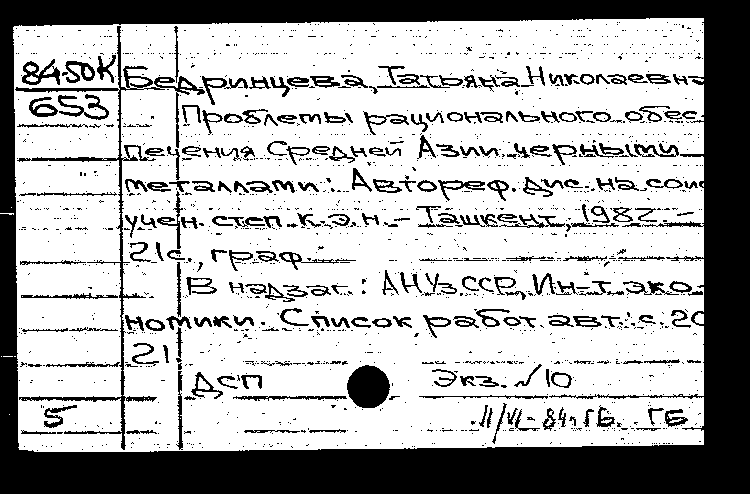 84-50К Бедринцева, Татьяна Николаевна
653 Проблемы рационального обес-
печения Средней Азии черными
металлами: Автореф. дис. на соис
учен. степ. к.э.н. - Ташкент, 1982. -
21с., граф.
В надзаг.: АН УзССР, Ин-т эко-
номики. Список работ авт.: с. 20
21.
ДСП Экз. №10
5 11/VI-84г. ГБ. ГБ